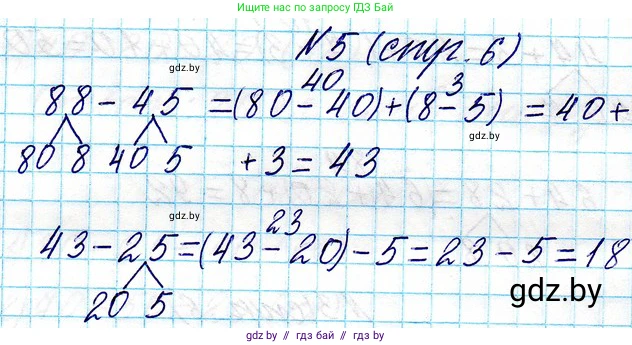 Присоединяйтесь к нам в Телеграмм
Ищите нас по запросу ГДЗ Бай
N5 (стр. 6)
40 3
88 - 45 = (80 - 40) + (8 - 5) = 40 +
80 8 40 5 + 3 = 43
gdz.by
gdz.by
gdz.by
23
43 - 25 = (43 - 20) - 5 = 23 - 5 = 18
20 5
gdz.by
gdz.by // гдз бай // гдз.by